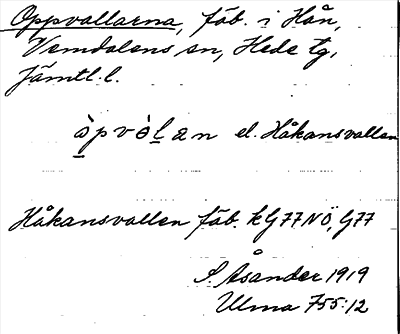 Oppvallarna, fäb. i Hån,
Vemdalens sn, Hede tg,
Jämtl. l.
òpvòlan el. Håkansvallen
Håkansvallen fäb. kG77NÖ, G77
S. Åsander 1919
Ulma 755:12